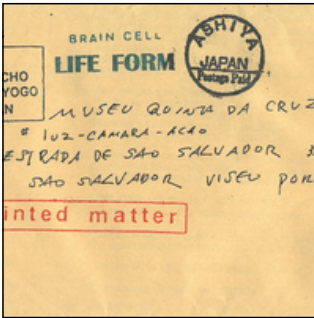 BRAIN CELL
LIFE FORM
ASHIYA
JAPAN
Postage Paid
CHO
YOGO
N
MUSEU QUINTA DA CRUZ
# LUZ-CAMARA-ACAO
ESTRADA DE SAO SALVADOR 3
SAO SALVADOR VISEU POR
inted matter